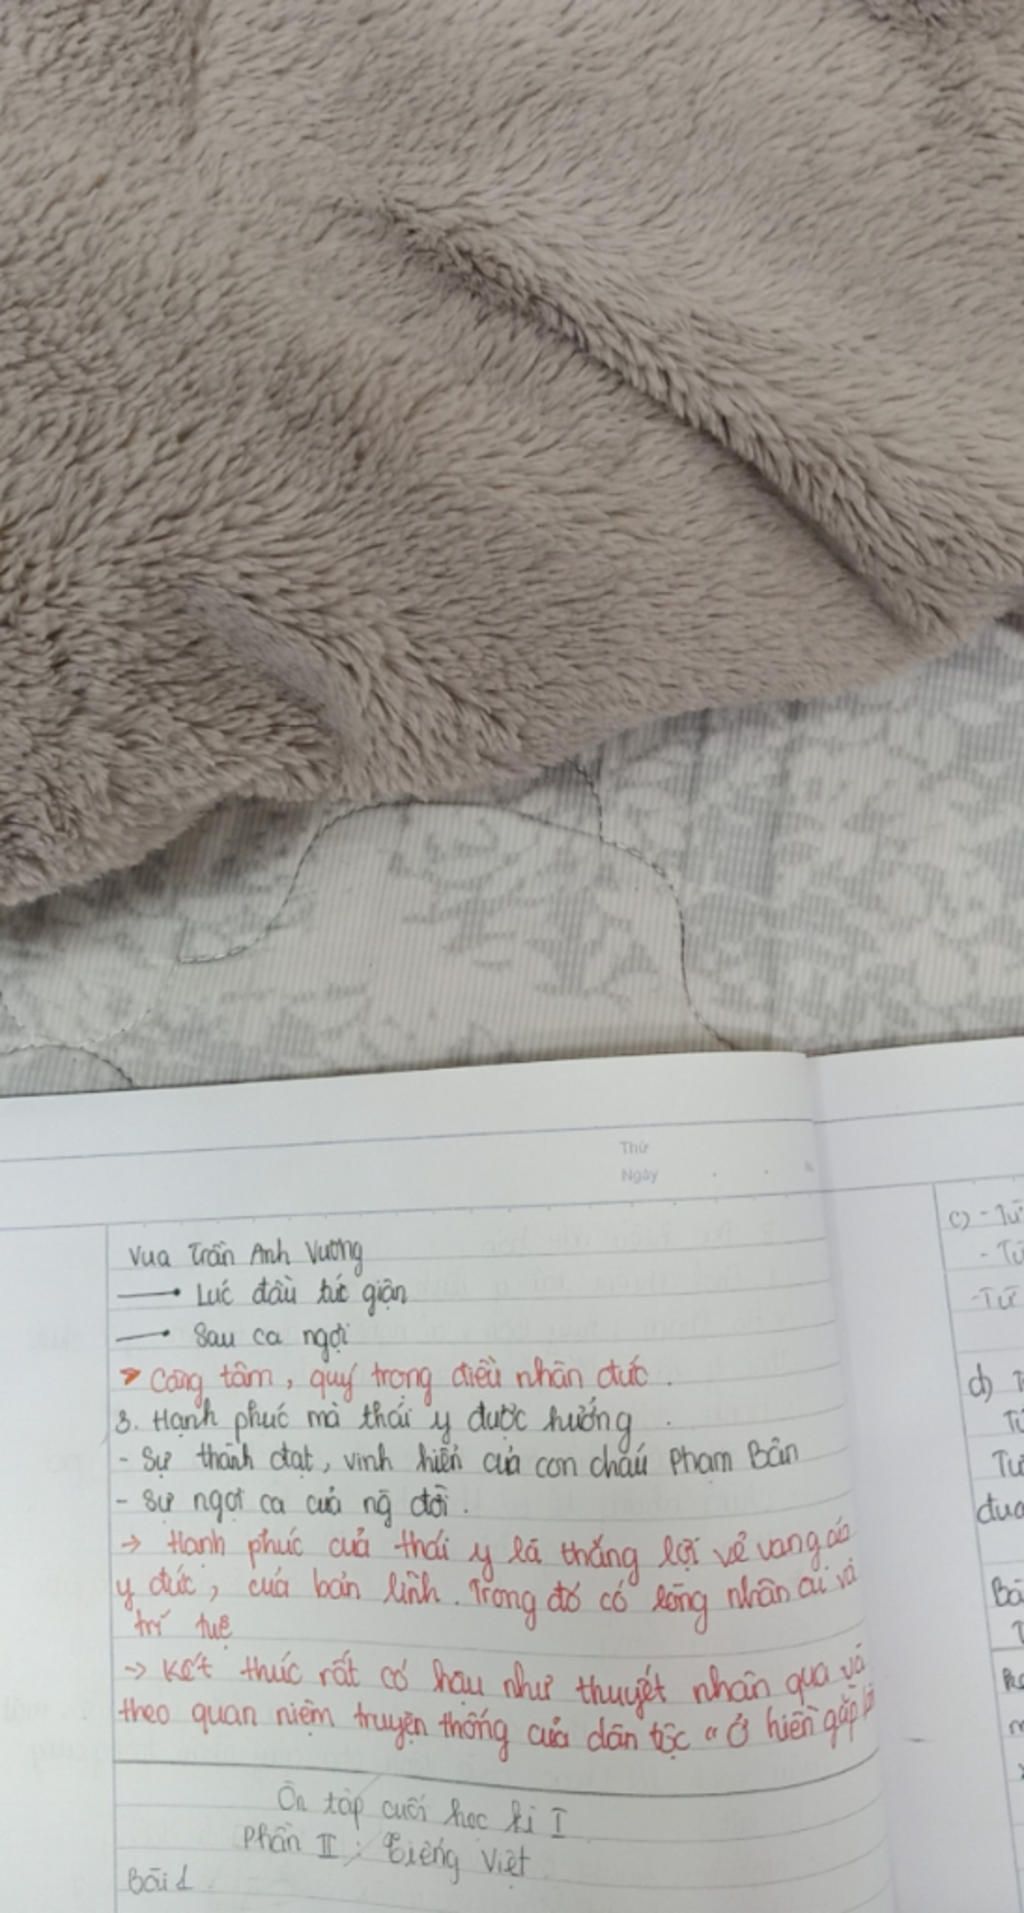 Thứ
Ngày
Vua Trần Anh Vương
→ Lúc đầu tức giận
→ Sau ca ngợi
→ Công tâm, quý trọng điều nhân đức.
3. Hạnh phúc mà thái y được hưởng.
- Sự thành đạt, vinh hiển của con cháu Phạm Bân
- Sự ngợi ca của ng đời.
→ Hạnh phúc của thái y là thắng lợi vẻ vang của
y đức, của bản lĩnh. Trong đó có lòng nhân ái và
trí tuệ
→ Kết thúc rất có hậu như thuyết nhân quả và
theo quan niệm truyện thống của dân tộc "Ở hiền gặp
Ôn tập cuối học kì I
Phần II: Tiếng Việt
Bài 1
c) - Từ
- Từ
- Từ
d)
Từ